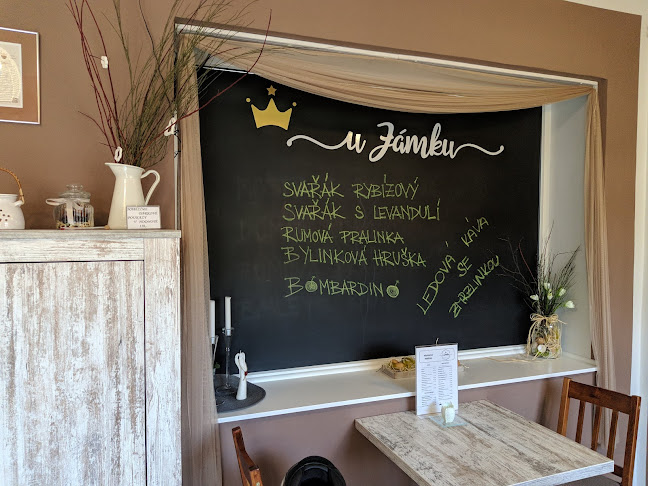 u Zámku
SVAŘÁK RYBÍZOVÝ
SVAŘÁK S LEVANDULÍ
RUMOVÁ PRALINKA
BYLINKOVÁ HRUŠKA
BOMBARDINO
LEDOVÁ KÁVA
SE
ZMRZLINKOU